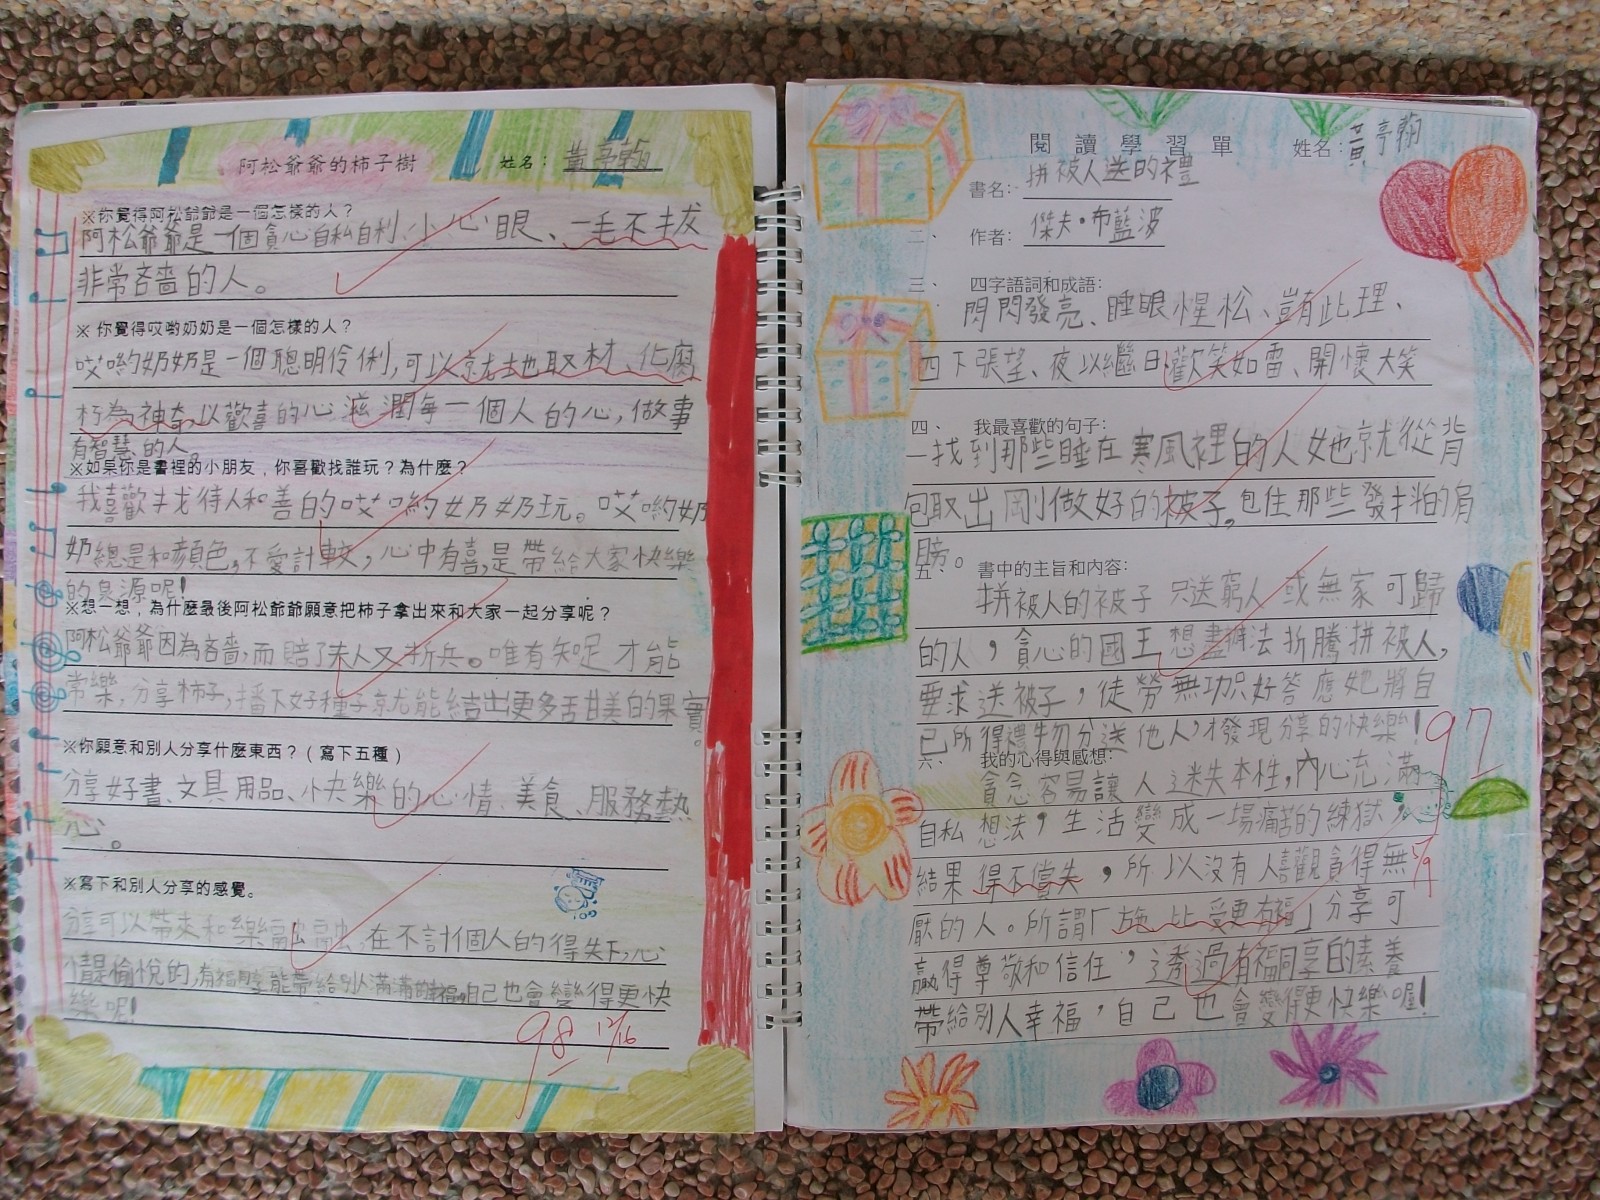 阿松爺爺的柿子樹 姓名：黃亭翰
※你覺得阿松爺爺是一個怎樣的人？
阿松爺爺是一個貪心自私自利、小心眼、一毛不拔
非常吝嗇的人。
※你覺得哎喲奶奶是一個怎樣的人？
哎喲奶奶是一個聰明伶俐,可以就地取材、化腐
朽為神奇,以歡喜的心滋潤每一個人的心,做事
有智慧的人。
※如果你是書裡的小朋友，你喜歡找誰玩？為什麼？
我喜歡找待人和善的哎喲奶奶玩。哎喲奶
奶總是和顏色,不愛計較,心中有喜,是帶給大家快樂
的泉源呢!
※想一想，為什麼最後阿松爺爺願意把柿子拿出來和大家一起分享呢？
阿松爺爺因為吝嗇,而賠了夫人又折兵。唯有知足才能
常樂,分享柿子,播下好種子就能結出更多甘美的果實。
※你願意和別人分享什麼東西？（寫下五種）
分享好書、文具用品、快樂的心情、美食、服務熱
心。
※寫下和別人分享的感覺。
分享可以帶來和樂融融,在不計個人的得失下,心
情是愉悅的,有福同享能帶給別人滿滿的幸福,自己也會變得更快
樂呢!
98 12/16
閱讀學習單 姓名：黃亭翰
書名：拼被人送的禮
二、 作者：傑夫·布藍波
三、 四字語詞和成語：
閃閃發亮、睡眼惺松、豈有此理、
四下張望、夜以繼日、歡笑如雷、開懷大笑
四、 我最喜歡的句子：
一找到那些睡在寒風裡的人她就從背
包取出剛做好的被子,包住那些發抖的肩
膀。
五、 書中的主旨和內容：
拼被人的被子只送窮人或無家可歸
的人，貪心的國王想盡辦法折騰拼被人,
要求送被子，徒勞無功只好答應她將自
己所得禮物分送他人,才發現分享的快樂!
六、 我的心得與感想：
貪念容易讓人迷失本性,內心充滿
自私想法，生活變成一場痛苦的練獄，
結果得不償失，所以沒有人喜觀貪得無
厭的人。所謂「施比受更有福」分享可
贏得尊敬和信任，透過有福同享的素養
帶給別人幸福，自己也會變得更快樂喔!
97
5/9